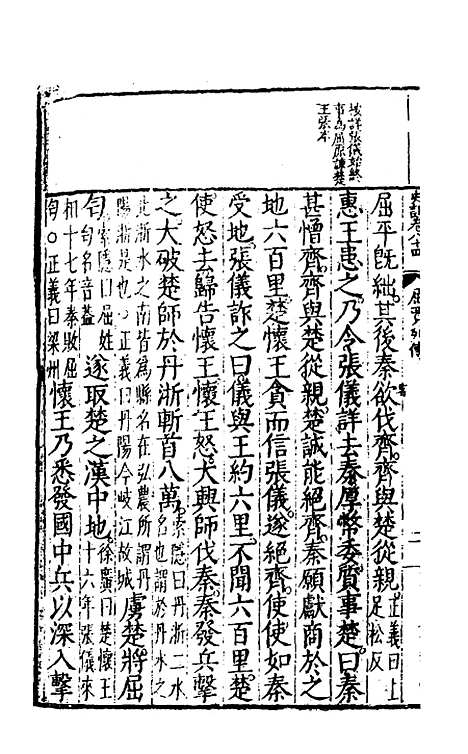 按詳張儀始終
事為屈原諫楚
王張本
史記卷八十四　屈賈列傳　二
屈平既絀其後秦欲伐齊齊與楚從親正義曰上足松反
惠王患之乃令張儀詳去秦厚幣委質事楚曰秦
甚憎齊齊與楚從親楚誠能絕齊秦願獻商於之
地六百里楚懷王貪而信張儀遂絕齊使使如秦
受地張儀詐之曰儀與王約六里不聞六百里楚
使怒去歸告懷王懷王怒大興師伐秦秦發兵擊
之大破楚師於丹淅斬首八萬索隱曰丹淅二水名也謂於丹水之
北淅水之南皆為縣名在弘農所謂丹陽淅是也○正義曰丹陽今岐江故城虜楚將屈
匄索隱曰屈姓匄名音蓋遂取楚之漢中地徐廣曰楚懷王十六年張儀來
相十七年秦敗屈匄○正義曰梁州懷王乃悉發國中兵以深入擊